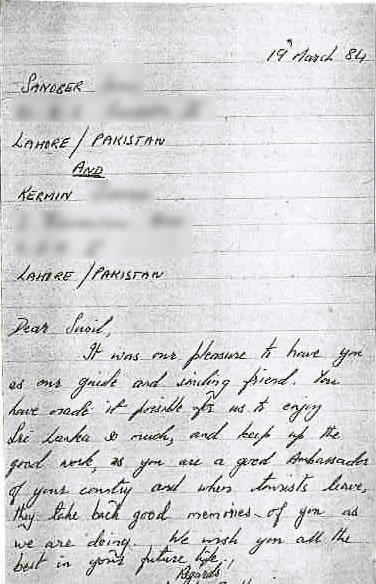 19th March 84
SANOBER
LAHORE / PAKISTAN
AND
KERMIN
LAHORE / PAKISTAN
Dear Sunil,
It was our pleasure to have you
as our guide and smiling friend. You
have made it possible for us to enjoy
Sri Lanka so much, and keep up the
good work, as you are a good Ambassador
of your country and when tourists leave,
they take back good memories of you as
we are doing. We wish you all the
best in your future life,
Regards!